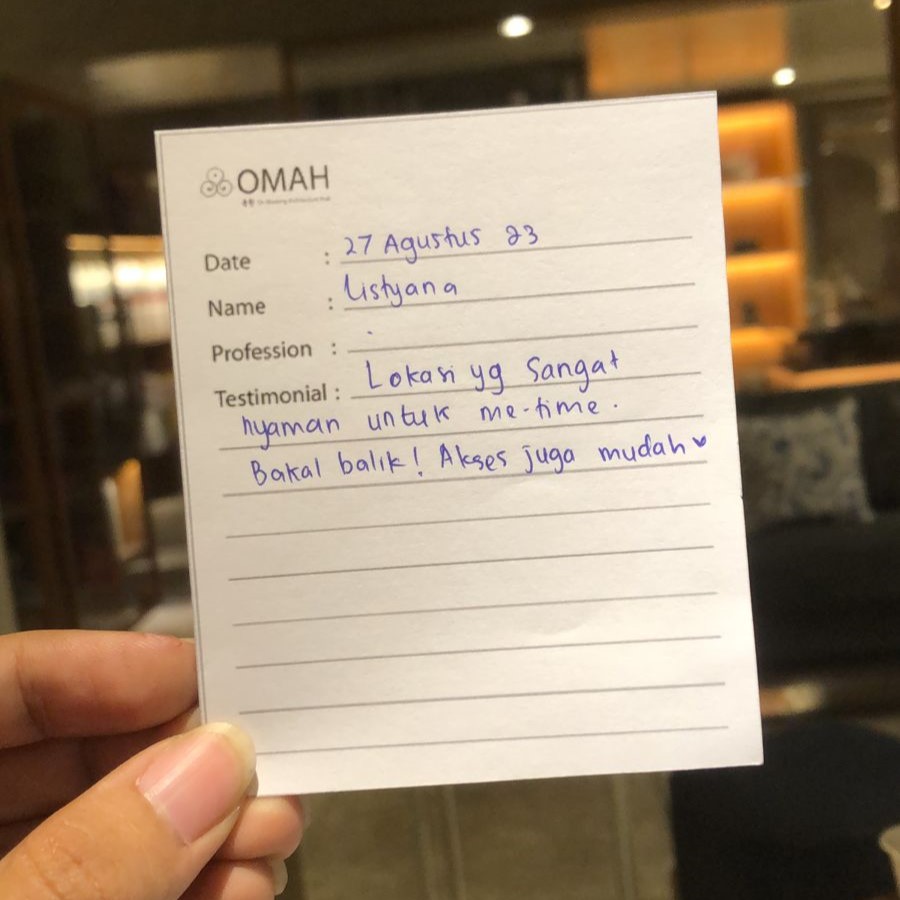 OMAH
Date : 27 Agustus 23
Name : Listyana
Profession : .
Testimonial : Lokasi yg Sangat
nyaman untuk me-time.
Bakal balik! Akses juga mudah ♥